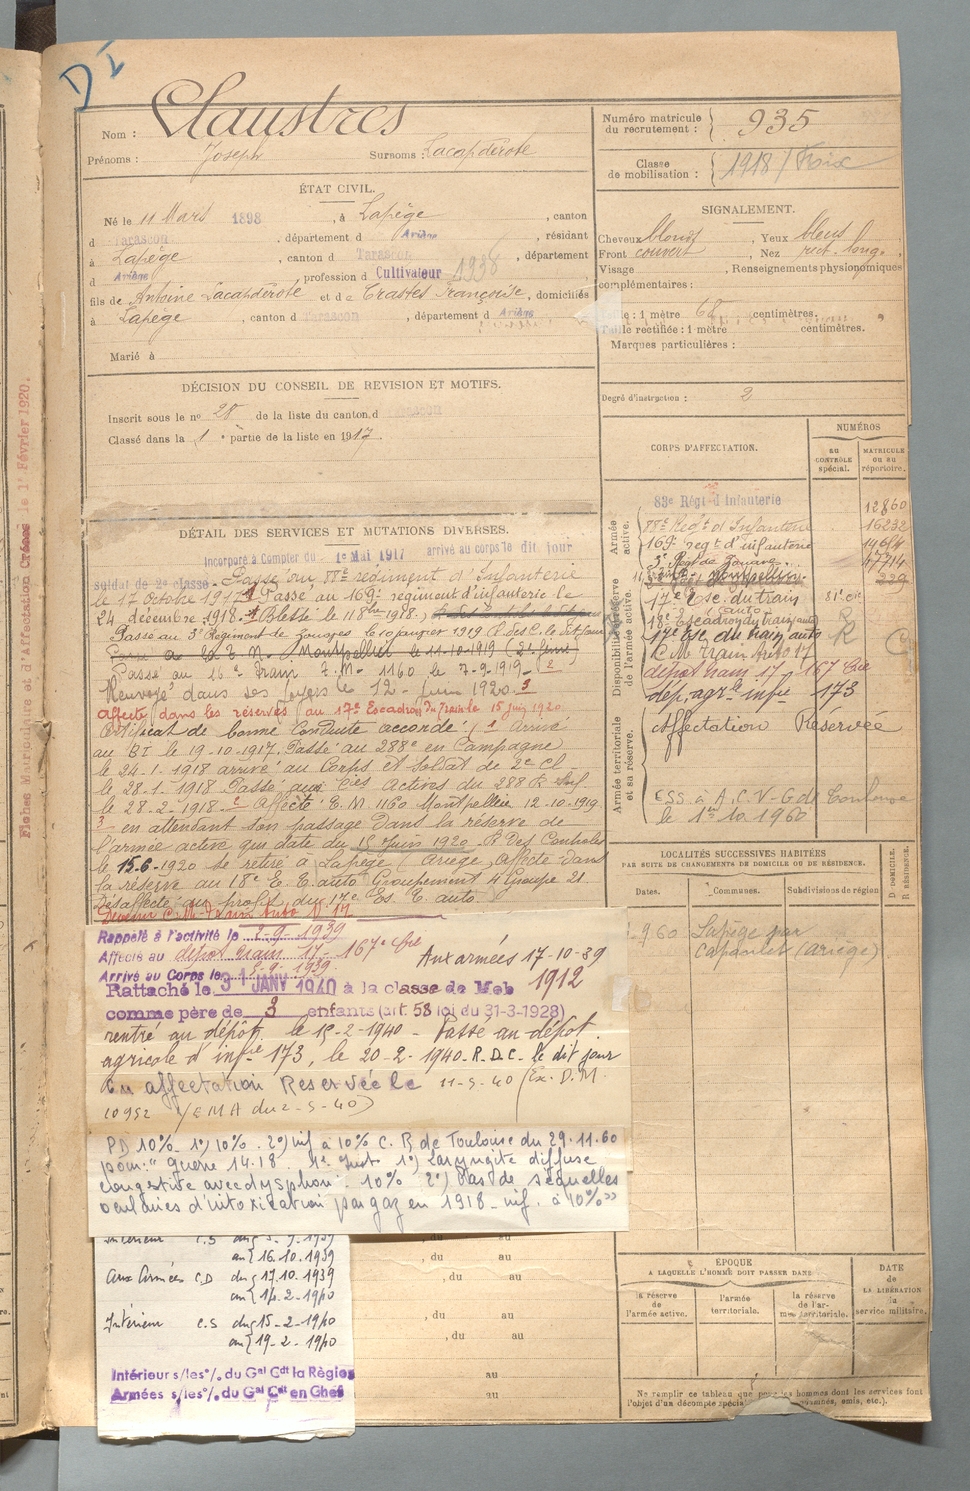 D I
Fiches Matricule et d'Affectation Créées le 1er Février 1920.
Nom : Claustres
Prénoms : Joseph Surnoms : Lacapderote
Numéro matricule du recrutement : 935
Classe de mobilisation : 1918 / Foix
ÉTAT CIVIL.
Né le 11 Mars 1898, à Lapège, canton
d Tarascon, département d Ariège, résidant
à Lapège, canton d Tarascon, département
d Ariège, profession d Cultivateur 1938
fils de Antoine Lacapderote et de Crastes Françoise, domiciliés
à Lapège, canton d Tarascon, département d Ariège
Marié à
SIGNALEMENT.
Cheveux blonds, Yeux bleus
Front couvert, Nez rect. long.
Visage, Renseignements physionomiques
complémentaires :
Taille : 1 mètre 68 centimètres.
Taille rectifiée : 1 mètre centimètres.
Marques particulières :
Degré d'instruction : 2
DÉCISION DU CONSEIL DE REVISION ET MOTIFS.
Inscrit sous le no 28 de la liste du canton d Tarascon
Classé dans la 1e partie de la liste en 1917.
CORPS D'AFFECTATION.
NUMÉROS
au CONTRÔLE spécial.
MATRICULE ou au répertoire.
Armée active.
Disponibilité et réserve de l'armée active.
Armée territoriale et sa réserve.
83e Régt d'Infanterie 12860
88e Régt d'Infanterie 16232
169e regt d'infanterie
3e Regt de Zouaves
17e Esc. du train
18e Escadron du train auto
17e Esc. du train auto
C.M. Train Auto 17
dépôt train 17 - 167 Cie
dép. agrle infie 173
Affectation Réservée
ESS. à A.C.V-G de Toulouse
le 1er 10 1960
DÉTAIL DES SERVICES ET MUTATIONS DIVERSES.
Incorporé à Compter du 1er Mai 1917 arrivé au corps le dit jour
soldat de 2e classe. Passé au 88e régiment d'Infanterie
le 17 Octobre 1917. Passé au 169e regiment d'infanterie le
24 décembre 1918. Blessé le 1918.
Passé au 3e Régiment de Zouaves le 10 janvier 1919
Passé à la T.M. Montpellier le 11-10-1919
Passé au 16e Train T.M. 1160 le 7-9-1919
Renvoyé dans ses foyers le 12 Juin 1920. 3
affecté dans les réserves au 17e Escadron du Train le 15 juin 1920
Certificat de bonne Conduite accordé. Arrivé
au BI le 19-10-1917. Passé au 288e en Campagne
le 24-1-1918 arrivé au Corps et Soldat de 2e cl
le 28-1-1918 Passé aux Cies Actives du 288 R.
le 28-2-1918. Affecté E.M 1160 Montpellier 12-10-1919
3 en attendant son passage dans la réserve de
l'armée active qui date du 15 Juin 1920. R Des Controles
le 15-6-1920 se retire à Lapège (Ariège) affecté dans
la réserve au 18e E. T. auto Groupement 4 Groupe 21
Désaffecté au profit du 17e Es. T. auto
Devenu C.M. Train Auto No 17
Rappelé à l'activité le 2-9-1939
Affecté au dépôt train 17 - 167e Cie
Arrivé au Corps le 3-9-1939. Aux armées 17-10-39
Rattaché le 31 JANV 1940 à la classe de Mob 1912
comme père de 3 enfants (art. 58 loi du 31-3-1928)
rentré au dépôt le 15-2-1940 - Passé au dépôt
agricole d'infie 173, le 20-2-1940. R.D.C. le dit jour
En affectation Réservée le 11-5-40 (Ex. D.M.
10952 /EMA du 2-5-40)
PD 10%. 1°) 10%. 2°) inf à 10% C. R de Toulouse du 29.11.60
pour : "Guerre 14-18. 1°) Laryngite diffuse
congestive avec dysphonie. 10% 2°) Pas de séquelles
oculaires d'intoxication par gaz en 1918 - inf. à 10%"
Intérieur C.S du 3-9-1939
au 16.10.1939
Aux Armées C.D du 17.10.1939
au 14-2-1940
Intérieur C.S du 15-2-1940
au 19-2-1940
Intérieur s/les o/. du Gal Cdt la Région
Armées s/les o/. du Gal Cdt en Chef
, du au
, du au
, du au
, du au
au
au
LOCALITÉS SUCCESSIVES HABITÉES
PAR SUITE DE CHANGEMENTS DE DOMICILE OU DE RÉSIDENCE.
Dates. Communes. Subdivisions de région D. DOMICILE. R. RÉSIDENCE.
1960 Lapège par
Capoulet (Ariège)
ÉPOQUE
A LAQUELLE L'HOMME DOIT PASSER DANS
la réserve de l'armée active.
l'armée territoriale.
la réserve de l'armée territoriale.
DATE de LA LIBÉRATION du service militaire.
Ne remplir ce tableau que pour les hommes dont les services font
l'objet d'un décompte spécial